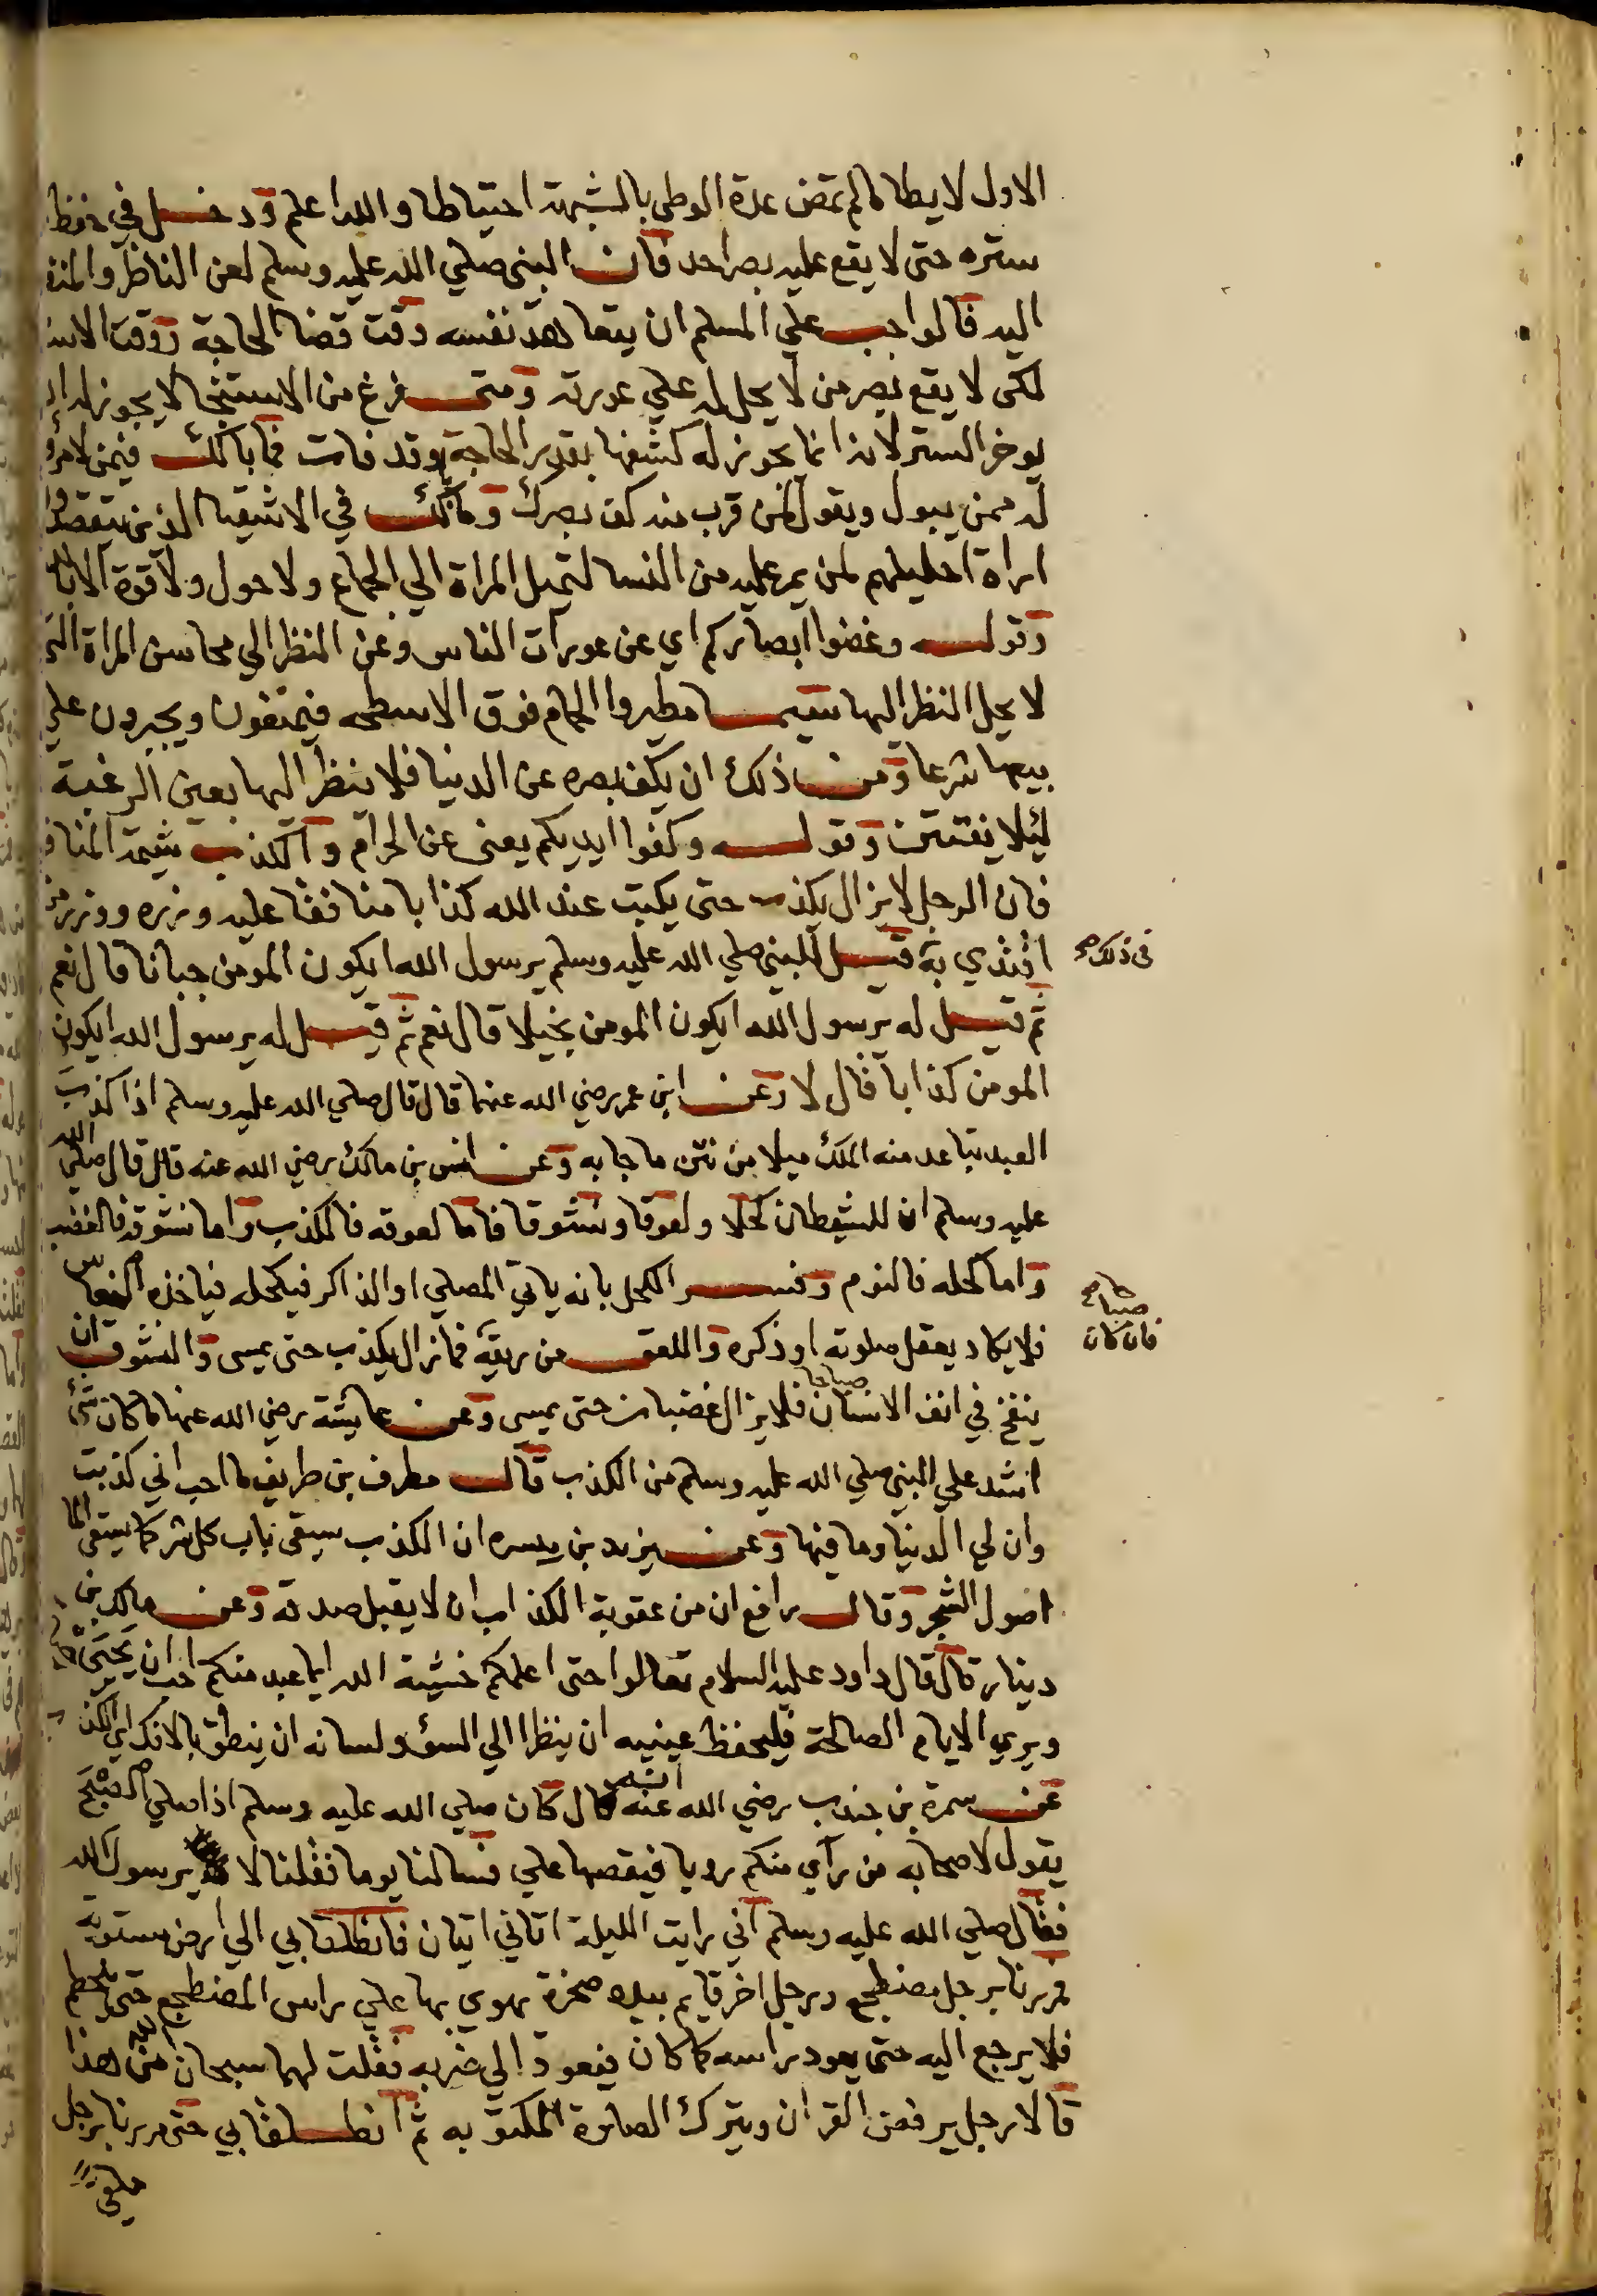 الاول لا يطا ما لم تمض عدة الوطى بالشبهة احتياطا والله اعلم ودخل في حفظ
ستره حتى لا يقع عليه بصر احد فان النبي صلي الله عليه وسلم لعن الناظر والمنظور
اليه فالواجب علي المسلم ان يتعاهد نفسه وقت قضا الحاجة ووقت
لكى لا يقع بصر من لا يحل له علي عورته ومتى فرغ من الاستنجا لا يجوز له ان
يوخر الستر لانه انما يجوز له كشفها بقدر الحاجة وقد فات فما بالك فيمن لا مرؤ
له ممن يبول ويقول لمن قرب منه كف بصرك وما بالك في الاشقيا الذين يتقصدوا
اراة احليلهم لمن يمر عليه من النسا لتميل المراة الي الجماع ولا حول ولا قوة الا بالله
وقوله وغضوا ابصاركم اي عن عورات الناس وعن النظر الي محاسن المراة التى
لا يحل النظر اليها سيما مطيروا الحمام فوق الاسطحه فيمنعون ويجبرون علي
بيعها شرعا ومن ذلك ان يكف بصره عن الدنيا فلا ينظر اليها بعين الرغبة
ليلا يفتتن وقوله وكفوا ايديكم يعنى عن الحرام والكذب شيمة المنافق
فان الرجل لا يزال يكذب حتى يكتب عند الله كذابا منافقا عليه وزره ووزر من
اقتدي به قيل للنبي صلي الله عليه وسلم يرسول الله ايكون المومن جبانا قال نعم
في ذلك صح
ثم قيل له يرسول الله ايكون المومن بخيلا قال نعم ثم قيل له يرسول الله ايكون
المومن كذابا قال لا وعن ابن عمر رضي الله عنهما قال قال صلي الله عليه وسلم اذا كذب
العبد تباعد منه الملك ميلا من نتن ما جا به وعن انس بن مالك رضي الله عنه قال قال صلي الله
عليه وسلم ان للشيطان كحلا ولعوقا ونشوقا فاما لعوقه فالكذب واما نشوقه فالغضب
واما كحله فالنوم وفسر الكحل بانه ياتي المصلي او الذاكر فيكحله فياخذه النعاس
فلا يكاد يعقل صلوته او ذكره واللعق من ريقه فما زال يكذب حتى يمسى والنشوق ان
صباحا صح
فان كان
ينفخ في انف الانسان صباحا فلا يزال غضبان حتى يمسى وعن عايشة رضي الله عنها ما كان شئ
اشد علي النبي صلي الله عليه وسلم من الكذب قال مطرف بن طريف ما احب اني كذبت
وان لي الدنيا وما فيها وعن يزيد بن ميسره ان الكذب سيقى باب كل شر كما يستقى الما
اصول الشجر وقال رافع ان من عقوبة الكذاب ان لا يقبل صدقه وعن مالك بن
دينار قال قال داود عليه السلام تعالوا حتى اعلمكم خشية الله ايما عبد منكم احب ان يحيى
ويري الايام الصالحة فليحفظ عينيه ان ينظرا الي السؤ ولسانه ان ينطق بالافك اي الكذب
عن سمرة بن جندب رضي الله عنه انه قال كان صلي الله عليه وسلم اذا صلي الصبح
يقول لاصحابه من رآي منكم رويا فيقصها علي فسالنا يوما فقلنا لا يرسول الله
فقال صلي الله عليه وسلم اني رايت الليلة اتاني اتيان فانطلقا بي الي ارض مستوية
فمررنا برجل مضطجع ورجل اخر قايم بيده صخرة يهوي بها علي راس المضطجع حتى
فلا يرجع اليه حتى يعود راسه كما كان فيعود الي ضربه فقلت لهما سبحان الله من هذا
قالا رجل يرفض القران ويترك الصلوة المكتوبه ثم انطلقا بي حتى مررنا برجل
ملقي